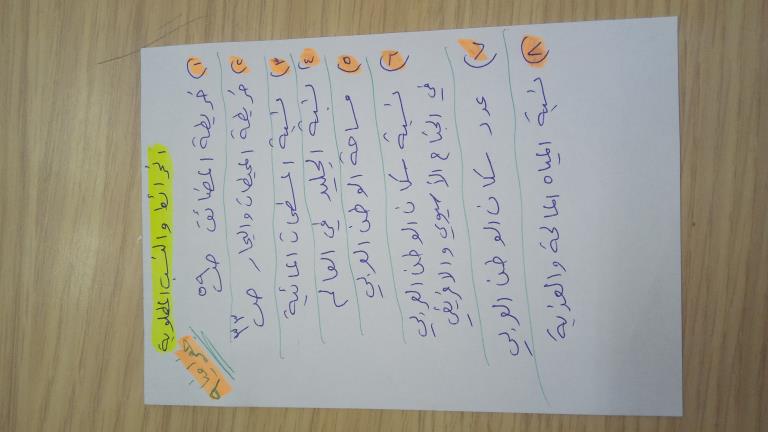 الخرائط والنسب المطلوبة
١) خريطة المضائق ص٥٩
٢) خريطة المحيطات والبحار ص٤٣
٣) نسبة المسطحات المائية
٤) نسبة الجليد في العالم
٥) مساحة الوطن العربي
٦) نسبة سكان الوطن العربي
في الجناح الآسيوي والأفريقي
٧) عدد سكان الوطن العربي
٨) نسبة المياه المالحة والعذبة